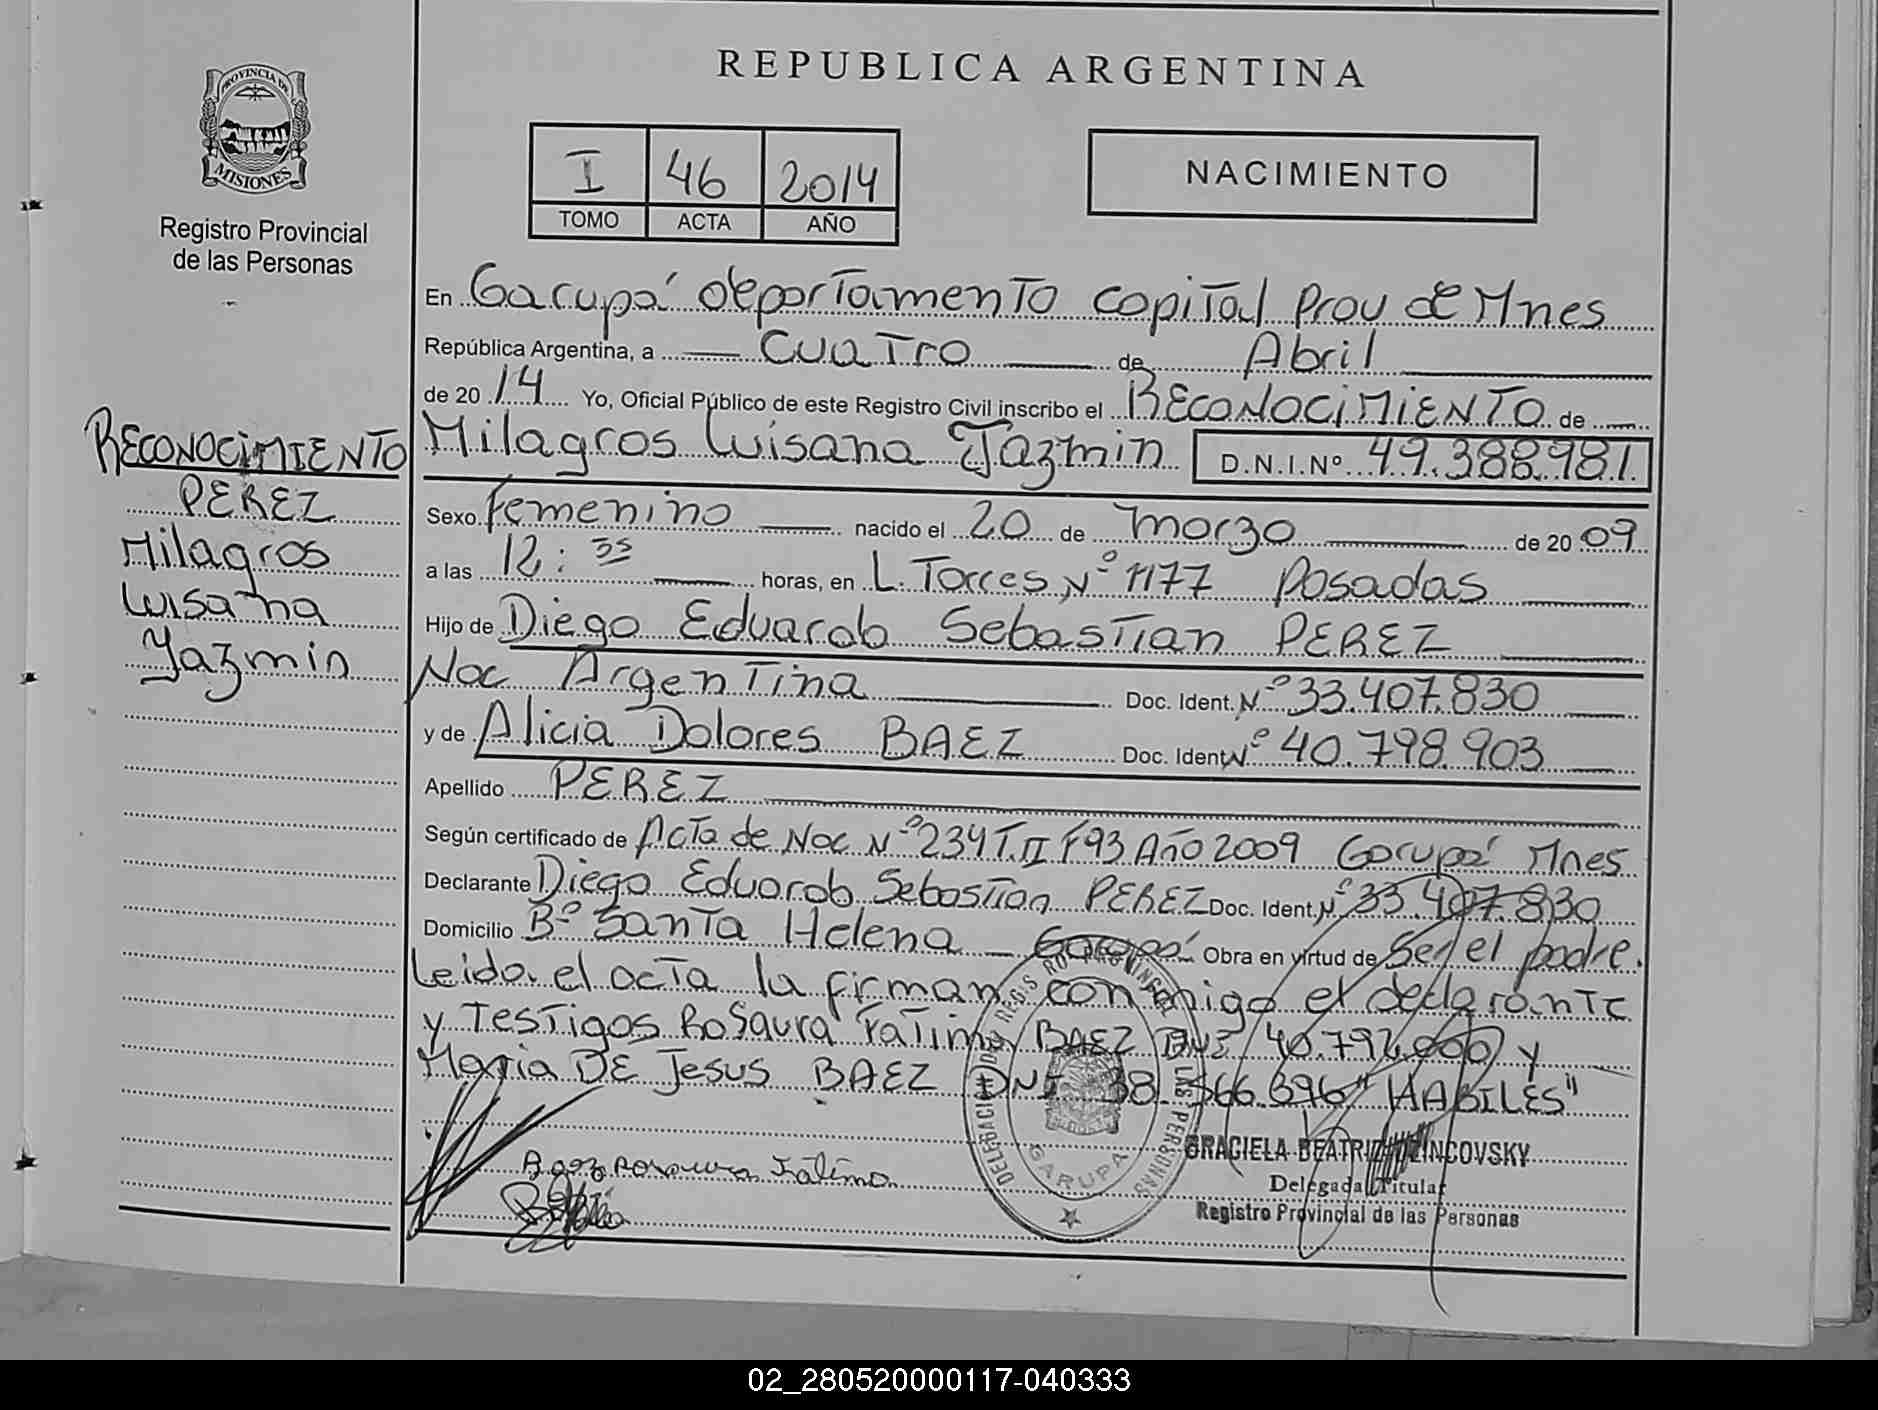 REPUBLICA ARGENTINA
PROVINCIA DE
MISIONES
Registro Provincial
de las Personas
I 46 2014
TOMO ACTA AÑO
NACIMIENTO
En Garupá departamento Capital Prov de Mnes
República Argentina, a Cuatro de Abril
de 20 14 Yo, Oficial Público de este Registro Civil inscribo el RECONOCIMIENTO de
Milagros Luisana Jazmin D.N.I.Nº 49.388.981
RECONOCIMIENTO
PEREZ
Milagros
Luisana
Yazmin
Sexo femenino nacido el 20 de marzo de 20 09
a las 12:35 horas, en L. Torres Nº 1177 Posadas
Hijo de Diego Eduardo Sebastian PEREZ
Nac Argentina Doc. Ident. Nº 33.407.830
y de Alicia Dolores BAEZ Doc. Ident Nº 40.798.903
Apellido PEREZ
Según certificado de Acta de Nac Nº 234 T.II F93 Año 2009 Garupá Mnes
Declarante Diego Eduardo Sebastian PEREZ Doc. Ident. Nº 33.407.830
Domicilio Bº Santa Helena Garupá Obra en virtud de Ser el padre.
Leido el acta la firman conmigo el declarante
y Testigos Rosaura Fatima BAEZ DNI y
Maria DE Jesus BAEZ DNI 38.566.396 "HABILES"
DELEGACION REGISTRO PROVINCIAL DE LAS PERSONAS
GARUPA
Baez Rosaura Fatima
GRACIELA BEATRIZ ZINCOVSKY
Delegada Titular
Registro Provincial de las Personas
02_280520000117-040333